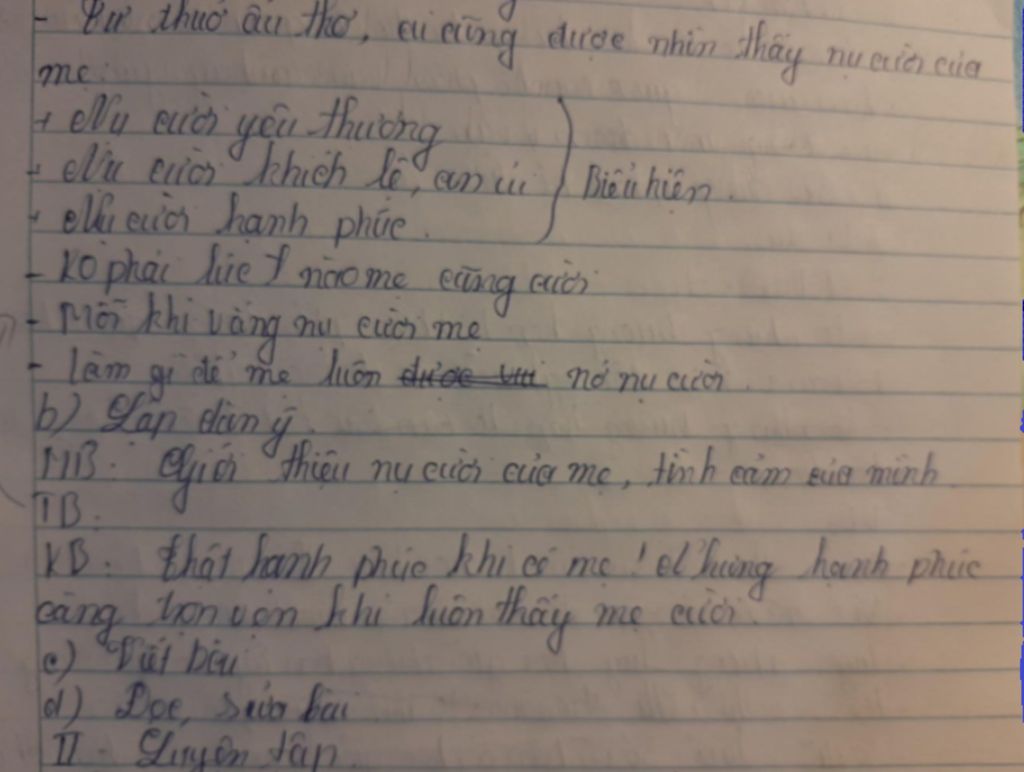 - Từ thuở ấu thơ, ai cũng được nhìn thấy nụ cười của
mẹ:
+ Nụ cười yêu thương
+ Nụ cười khích lệ, an ủi } Biểu hiện.
+ Nụ cười hạnh phúc.
- Ko phải lúc nào mẹ cũng cười
- Mỗi khi vắng nụ cười mẹ
- Làm gì để mẹ luôn nở nụ cười.
b) Lập dàn ý.
MB: Giới thiệu nụ cười của mẹ, tình cảm của mình
TB:
KB: Thật hạnh phúc khi có mẹ! Nhưng hạnh phúc
càng trọn vẹn khi luôn thấy mẹ cười.
c) Viết bài
d) Đọc, sửa bài
II - Luyện tập.